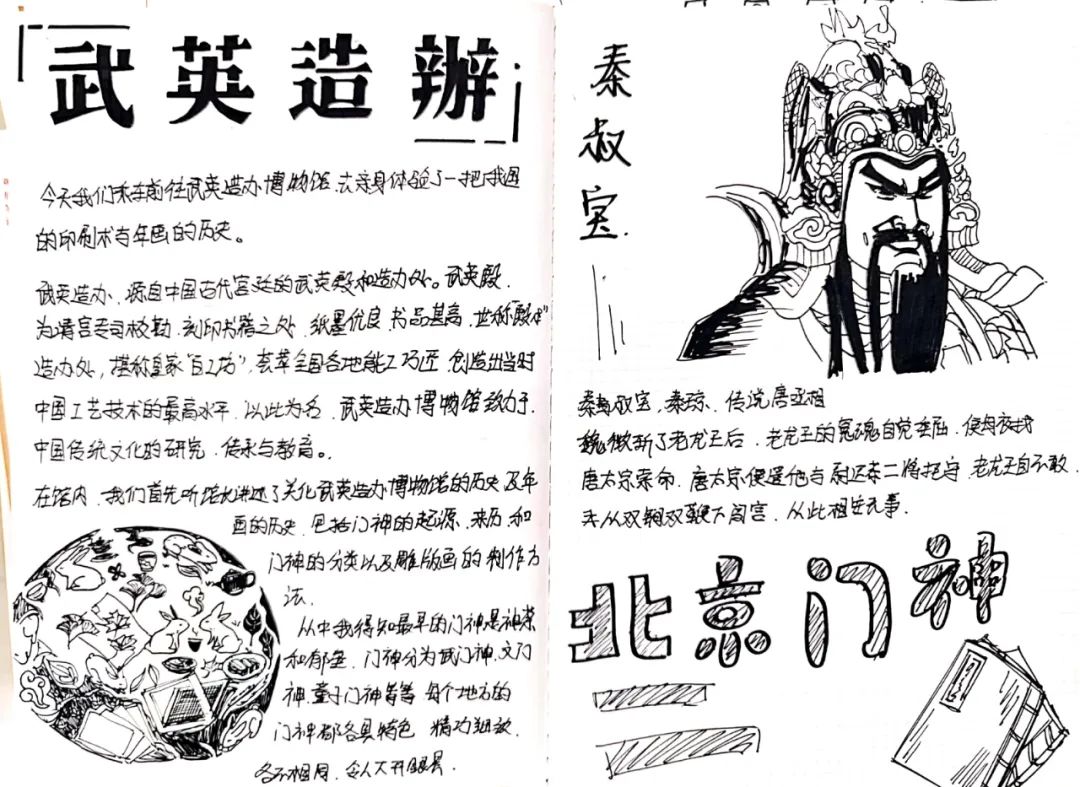 武英造辦
今天我们乘车前往武英造办博物馆,去亲身体验了一把我国
的印刷术与年画的历史。
武英造办,源自中国古代宫廷的武英殿和造办处。武英殿,
为清宫专司校勘、刻印书籍之处,纸墨优良,书品甚高,世称“殿本”
造办处,堪称皇家“百工坊”,荟萃全国各地能工巧匠,创造出当时
中国工艺技术的最高水平,以此为名,武英造办博物馆致力于
中国传统文化的研究、传承与教育。
在馆内,我们首先听馆长讲述了关于武英造办博物馆的历史及年
画的历史,包括门神的起源、来历和
门神的分类以及雕版画的制作方
法.
从中我得知最早的门神是神荼
和郁垒,门神分为武门神,文门
神,童子门神等等 每个地方的
门神都各具特色 精巧细致,
各不相同,令人大开眼界.
秦叔宝.
秦叔宝,秦琼,传说唐丞相
魏徵斩了老龙王后,老龙王的冤魂自觉委屈,便每夜找
唐太宗索命,唐太宗便遣他与尉迟恭二将把守,老龙王自不敢
来从双锏双鞭下闯宫,从此相安无事.
北京门神